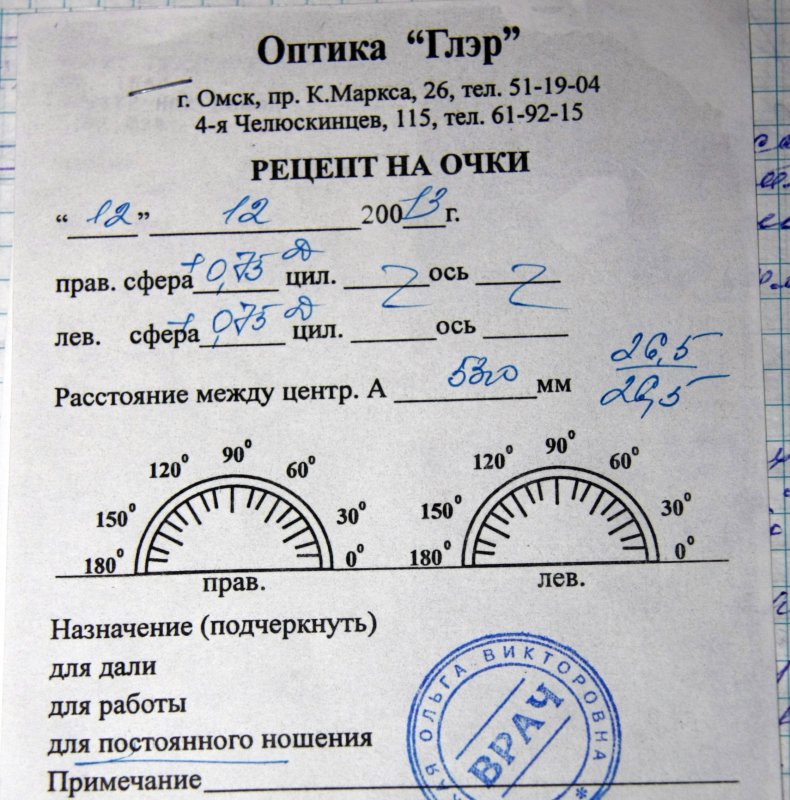 Оптика “Глэр”
г. Омск, пр. К.Маркса, 26, тел. 51-19-04
4-я Челюскинцев, 115, тел. 61-92-15
РЕЦЕПТ НА ОЧКИ
“12” 12 200 13 г.
прав. сфера +0,75 Д цил. ось
лев. сфера +0,75 Д цил. ось
26,5
Расстояние между центр. А 53 мм
26,5
120° 90° 60° 120° 90° 60°
150° 30° 150° 30°
180° 0° 180° 0°
прав. лев.
Назначение (подчеркнуть)
для дали
для работы
для постоянного ношения
Примечание
ОЛЬГА ВИКТОРОВНА
ВРАЧ